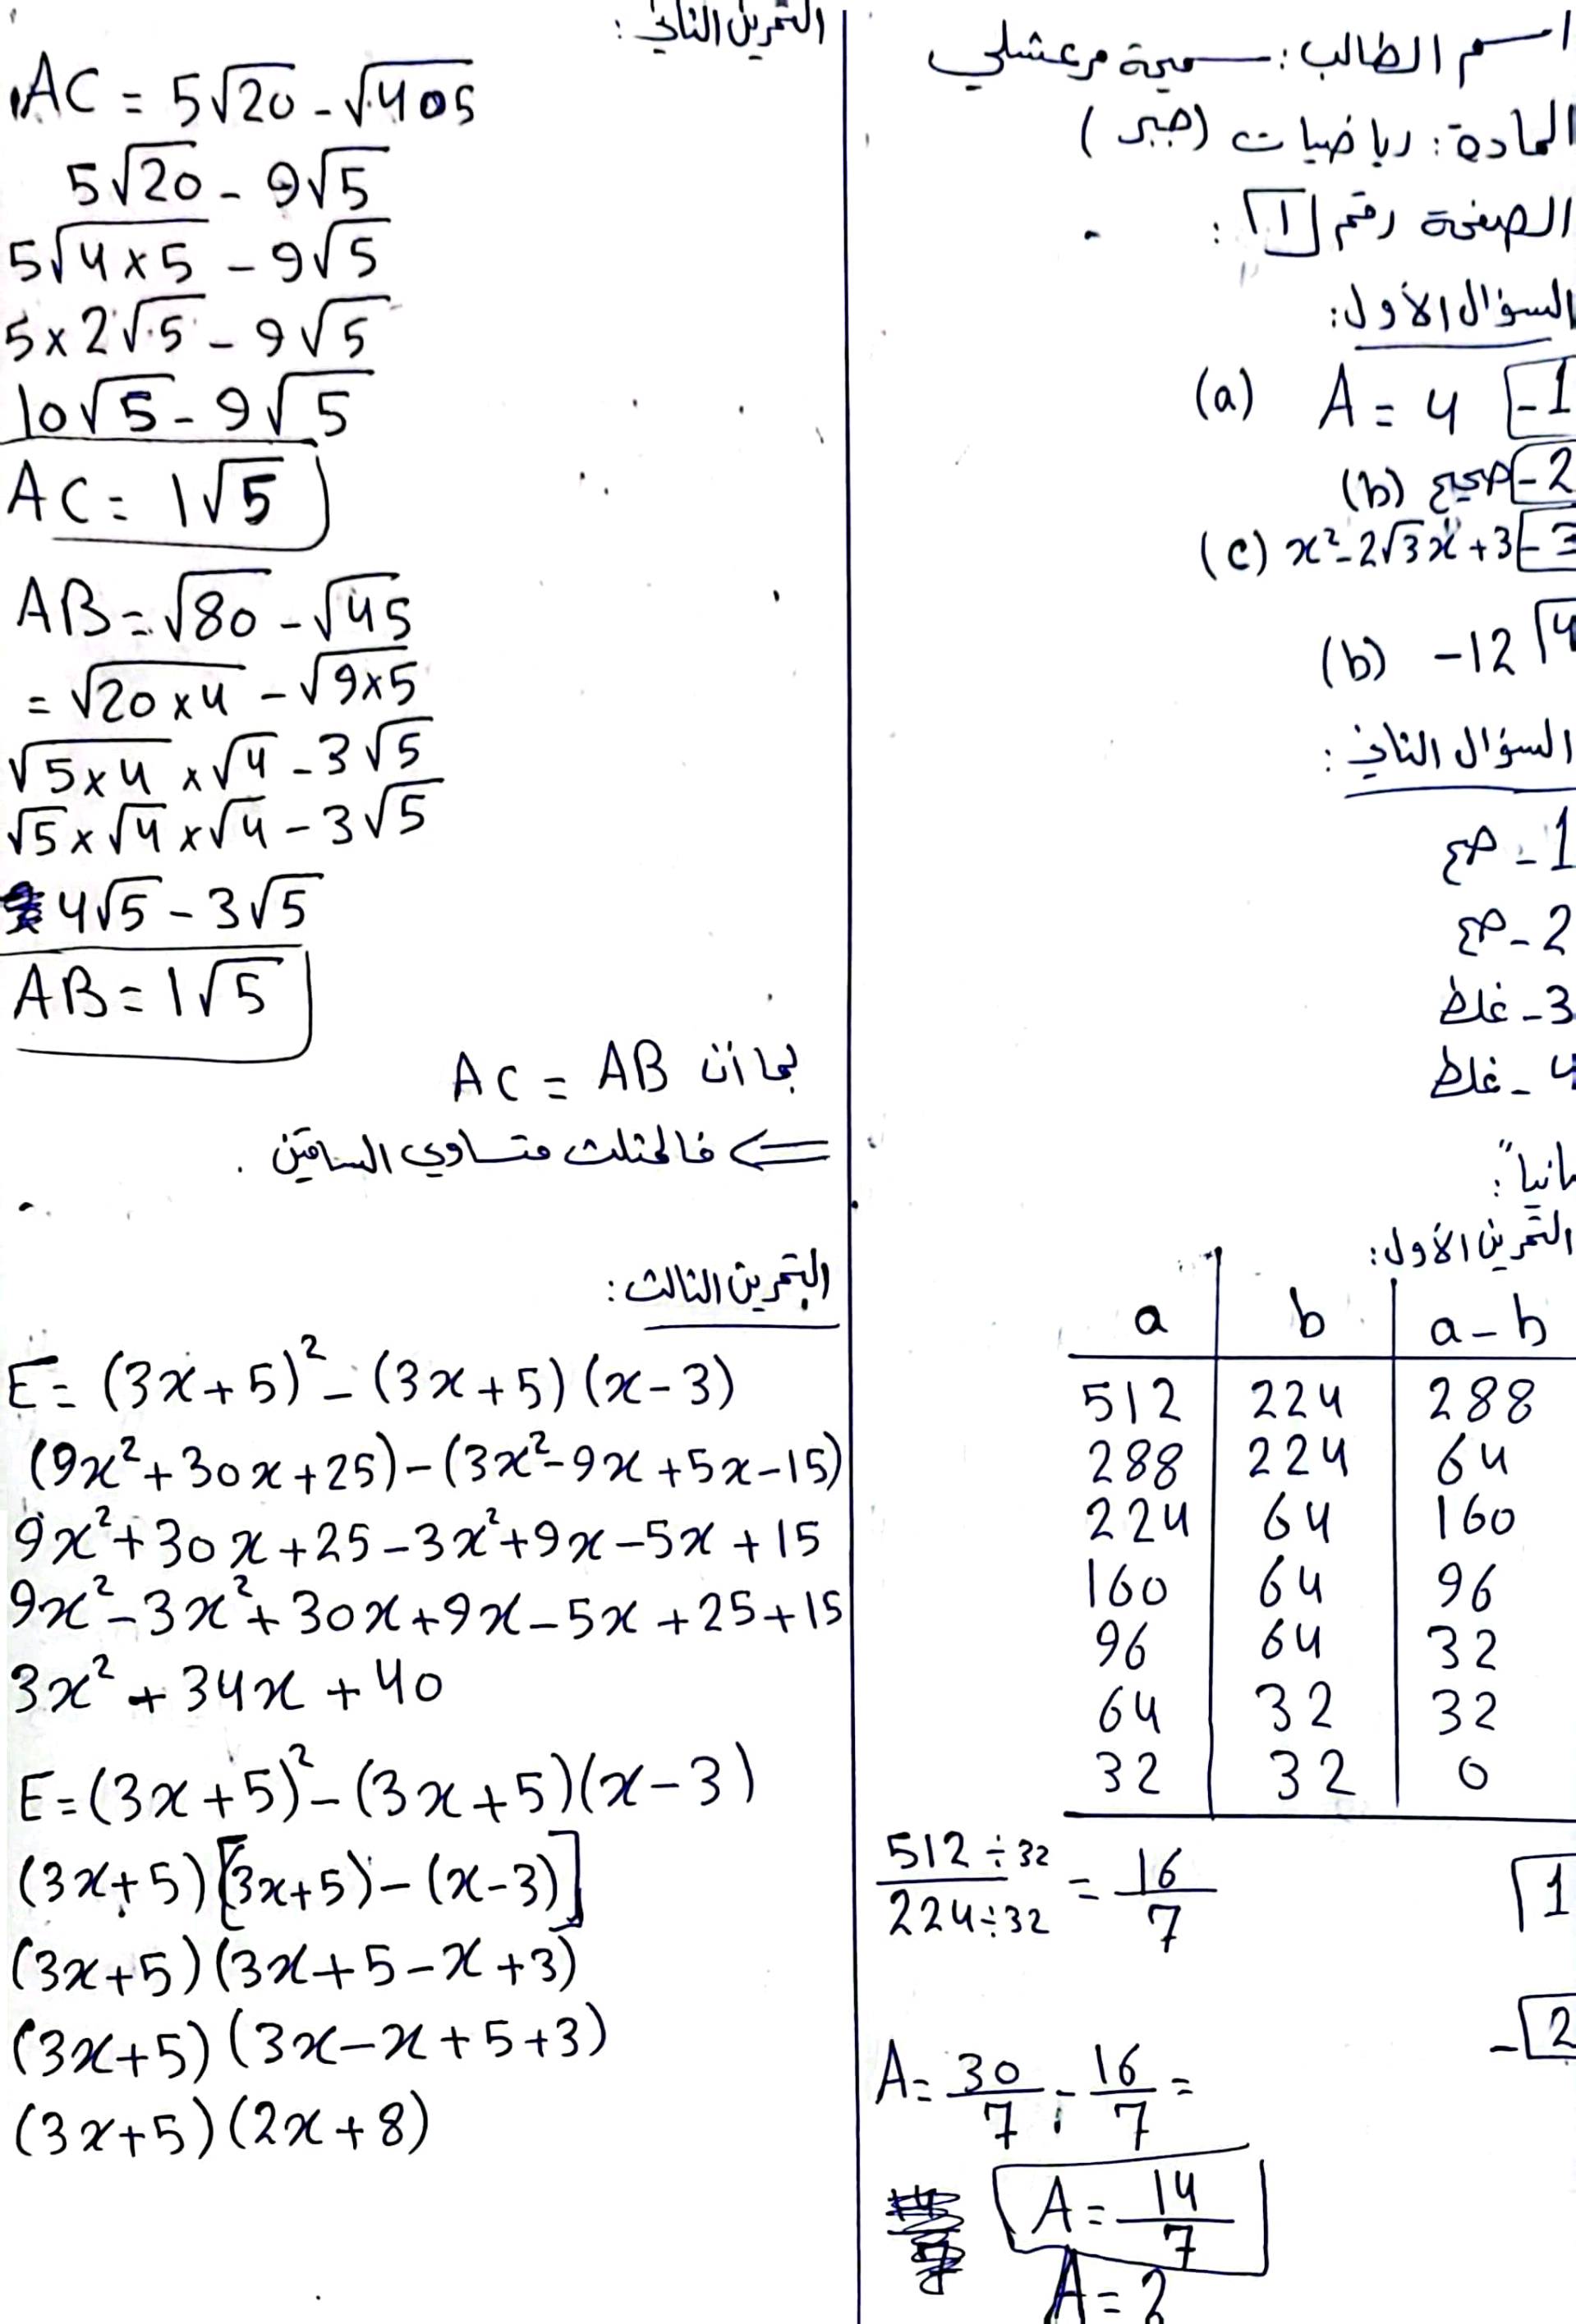 اسم الطالب: سميحة مرعشلي
المادة: رياضيات (جبر)
الصفحة رقم 1 :
السؤال الأول:
1- A = 4 (a)
2- صحيح (b)
3- x² - 2√3x + 3 (c)
4 -12 (b)
السؤال الثاني:
1- صح
2- صح
3- غلط
4- غلط
ثانياً:
التمرين الأول:
a b a-b
512 224 288
288 224 64
224 64 160
160 64 96
96 64 32
64 32 32
32 32 0
1 512÷32 / 224÷32 = 16/7
2- A = 30/7 - 16/7 =
A = 14/7
A = 2
التمرين الثاني:
AC = 5√20 - √405
5√20 - 9√5
5√4×5 - 9√5
5×2√5 - 9√5
10√5 - 9√5
AC = 1√5
AB = √80 - √45
= √20×4 - √9×5
√5×4 × √4 - 3√5
√5 × √4 × √4 - 3√5
4√5 - 3√5
AB = 1√5
بما أن AC = AB
⇐ فالمثلث متساوي الساقين .
التمرين الثالث:
E = (3x+5)² - (3x+5)(x-3)
(9x²+30x+25)-(3x²-9x+5x-15)
9x²+30x+25-3x²+9x-5x+15
9x²-3x²+30x+9x-5x+25+15
3x²+34x+40
E=(3x+5)²-(3x+5)(x-3)
(3x+5)[3x+5)-(x-3)]
(3x+5)(3x+5-x+3)
(3x+5)(3x-x+5+3)
(3x+5)(2x+8)